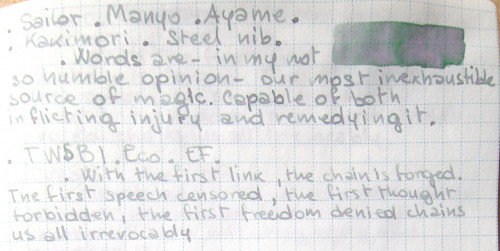 . Sailor . Manyo . Ayame.
. Kakimori . Steel nib.
. Words are - in my not
so humble opinion - our most inexhaustible
source of magic. Capable of both
inflicting injury and remedying it.
. TWSBI . Eco . EF.
. With the first link, the chain is forged.
The first speech censored, the first thought
forbidden, the first freedom denied chains
us all irrevocably